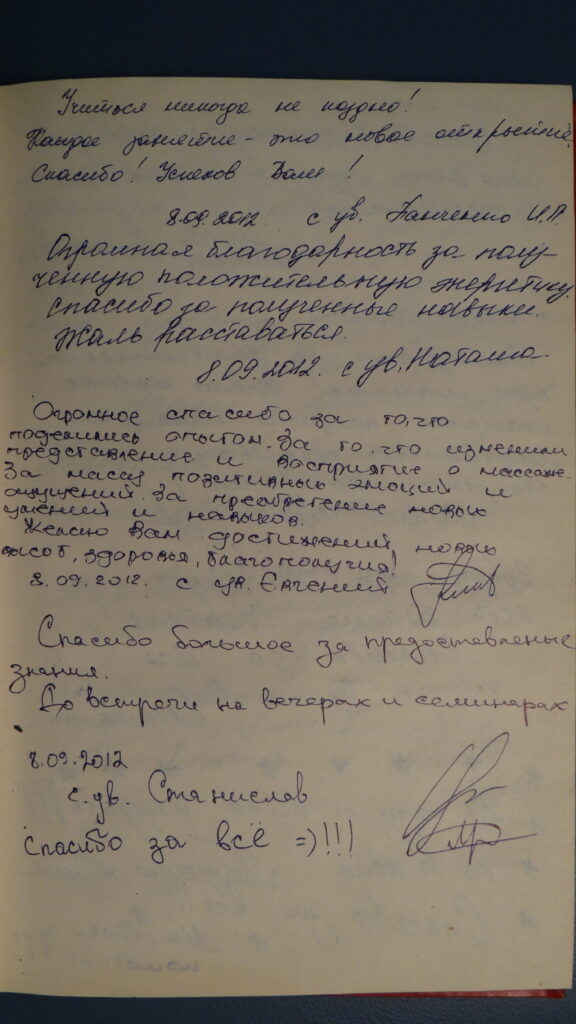 Учиться никогда не поздно!
Каждое занятие - это новое открытие.
Спасибо! Успехов Вам!
8.09.2012 с ув. Панченко И.П.
Огромная благодарность за полу-
ченную положительную энергетику.
спасибо за полученные навыки.
Жаль расставаться.
8.09.2012. с ув. Наташа
Огромное спасибо за то, что
поделились опытом. За то, что изменили
представление и восприятие о массаже.
За массу позитивных эмоций и
ощущений. За преобретение новых
умений и навыков.
Желаю Вам достижений, новых
высот, здоровья, благополучия!
8.09.2012. с ув. Євгений
Спасибо большое за предоставленые
знания.
До встречи на вечерах и семинарах
8.09.2012
с. ув. Станислав
Спасибо за всё =)!!!